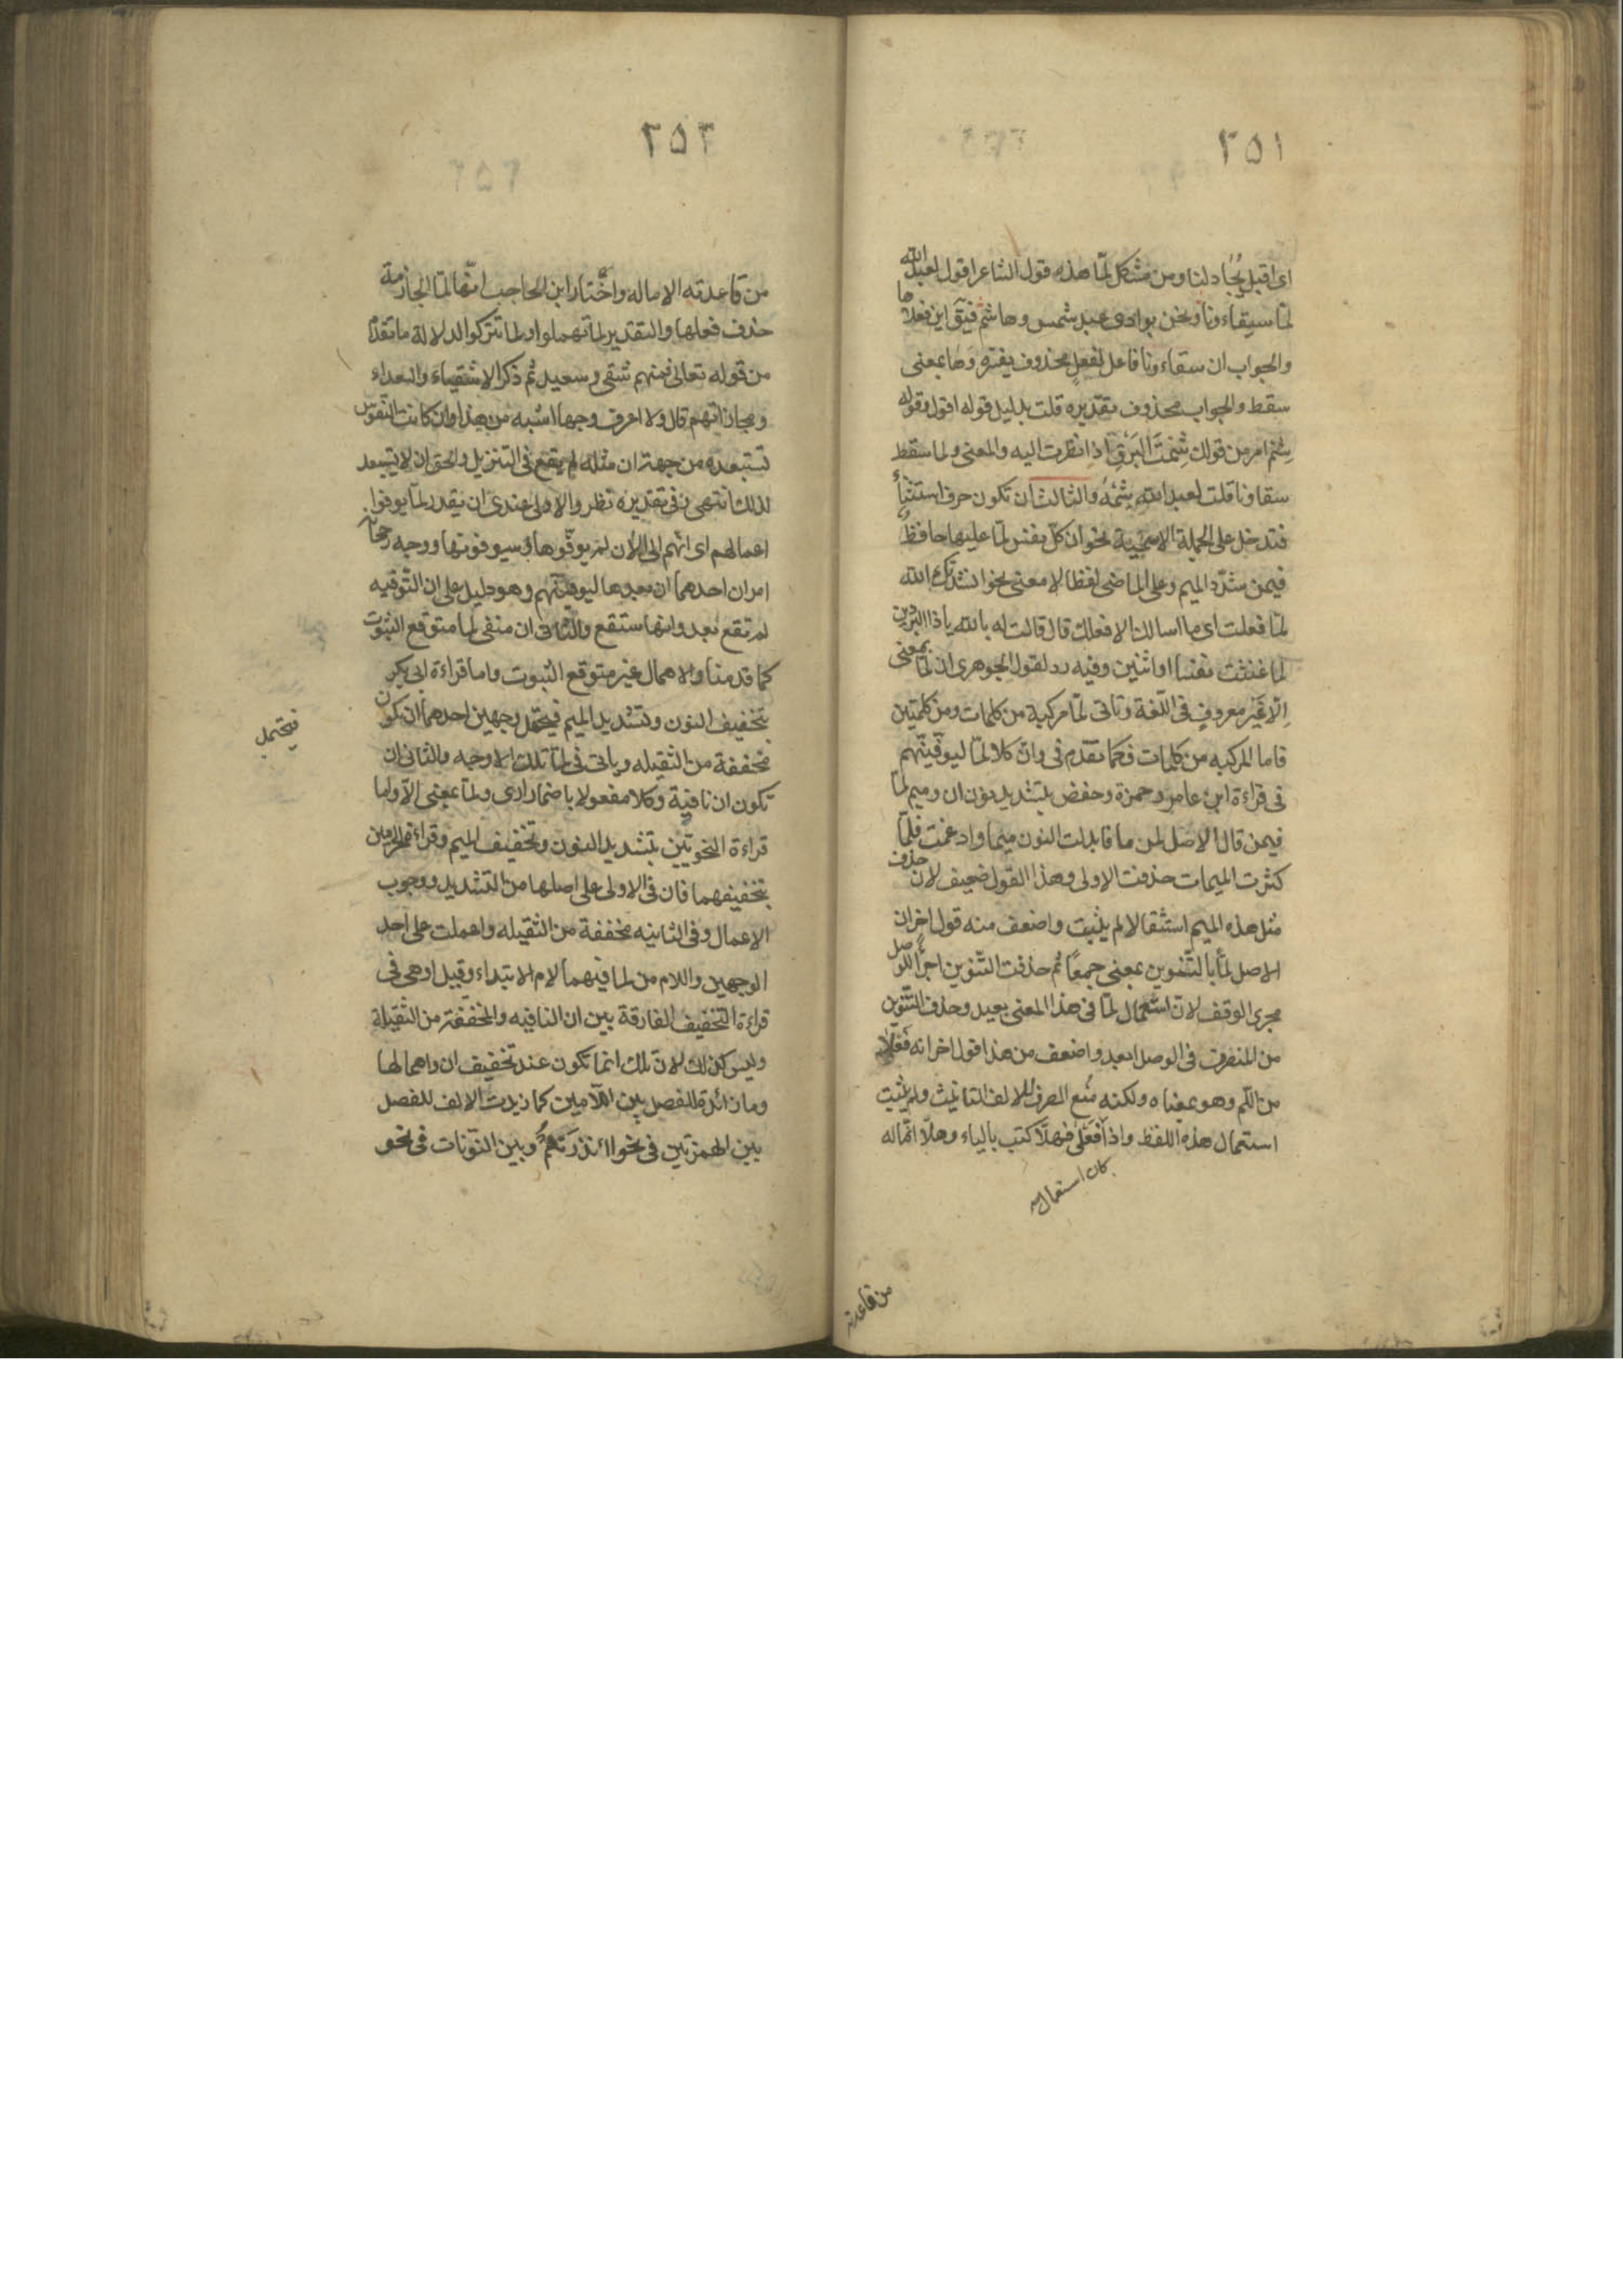 ٢٥١
اى اقبل يجادلنا ومن مشكل لمّا هذه قول الشاعر اقول لعبد الله
لمّا سقاءونا ونحن بوادى عبد شمس وهاشم فيقال اين فعلاها
والجواب ان سقاءونا فاعل لفعل محذوف يفسّره وها بمعنى
سقط والجواب محذوف تقديره قلت بدليل قوله اقول وقوله
شِمْ امر من قولك شِمْتَ البَرْقَ اذا نظرت اليه والمعنى ولما سقط
سقاونا قلت لعبد الله شِمْهُ والثالث ان تكون حرف استثناء
فتدخل على الجملة الاسمية نحو ان كل نفس لمّا عليها حافظ
فيمن شدّد الميم وعلى الماضى لفظا لا معنى نحو انشدك الله
لمّا فعلت اى ما اسالك الا فعلك قال قالت له بالله ياذا البردين
لما غنثت نفسا او اثنين وفيه رد لقول الجوهرى ان لمّا بمعنى
اِلّا غير معروفٍ فى اللّغة وتاتى لمّا مركبة من كلمات ومن كلمتين
فاما المركبه من كلمات فكما تقدّم فى وانّ كلا لمّا ليوفّينّهم
فى قراءة ابن عامر وحمزة وحفض بتشديد نون ان وميم لمّا
فيمن قال الاصل لمن ما فابدلت النون ميما وادغمت فلمّا
كثرت الميمات حذفت الاولى وهذا القول ضعيف لان حذف
مثل هذه الميم استثقالا لم يثبت واضعف منه قول اخر ان
الاصل لمّاً بالتّنوين بمعنى جمعًا ثم حذفت التّنوين اجراءً للوصل
مجرى الوقف لانّ استعمال لمّا فى هذا المعنى بعيد وحذف التّنوين
من المنصرف فى الوصل ابعد واضعف من هذا قول اخر انه فَعْلَى
من اللّم وهو بمعناه ولكنه مُنِع الصرف للالف التانيث ولم يثبت
استعمال هذه اللفظ واذا فَعْلَى فهلّا كتب بالياء وهلّا اماله
كان استعمال
من قاعدته
٢٥٢
من قاعدته الاماله واختار ابن الحاجب انّها لمّا الجازمة
حذف فعلها والتقدير لمّا يهملوا او لما يتركوا الدلالة ما تقدّم
من قوله تعالى فمنهم شقى وسعيد ثم ذكر الاشقياء والسعداء
ومجازاتهم قال ولا اعرف وجها اشبه من هذا وان كانت النّفوس
تستبعده من جهة ان مثله لم يقع فى التنزيل والحق ان لا يستبعد
لذلك انتهى وفى تقديره نظر والاولى عندى ان يقدر لمّا يوفوا
اعمالهم اى انّهم الى الان لم يوفّوها وسيوفونها ووجه رجحانه
امران احدهما ان بعدها ليوفّينّهم وهو دليل على ان التّوفيه
لم تقع بعد وانها ستقع والثّانى ان منفى لما متوقع الثبوت
كما قدمنا والاهمال غير متوقع الثبوت واما قراءة ابى بكر
بتخفيف النون وتشديد الميم فيحتمل وجهين احدهما ان تكون
فيحتمل
مخففة من الثقيله وياتى فى لمّا تلك الاوجه والثانى ان
تكون ان نافية وكلا مفعولا باضمار ارى ولمّا بمعنى الّا واما
قراءة النحويّين بتشديد النون وتخفيف الميم وقراءة الحرميين
بتخفيفهما فان فى الاولى على اصلها من التشديد ووجوب
الاعمال وفى الثانيه مخففة من الثقيله واعملت على احد
الوجهين واللام من لما فيهما لام الابتداء وقيل او هى فى
قراءة التخفيف الفارقة بين ان النافيه والمخففة من الثقيلة
وليس كذلك لانّ تلك انما تكون عند تخفيف ان واهمالها
وما زائدة للفصل بين اللّامين كما زيدت الالف للفصل
بين الهمزتين فى نحو اانذرتهُم وبين النّونات فى نحو